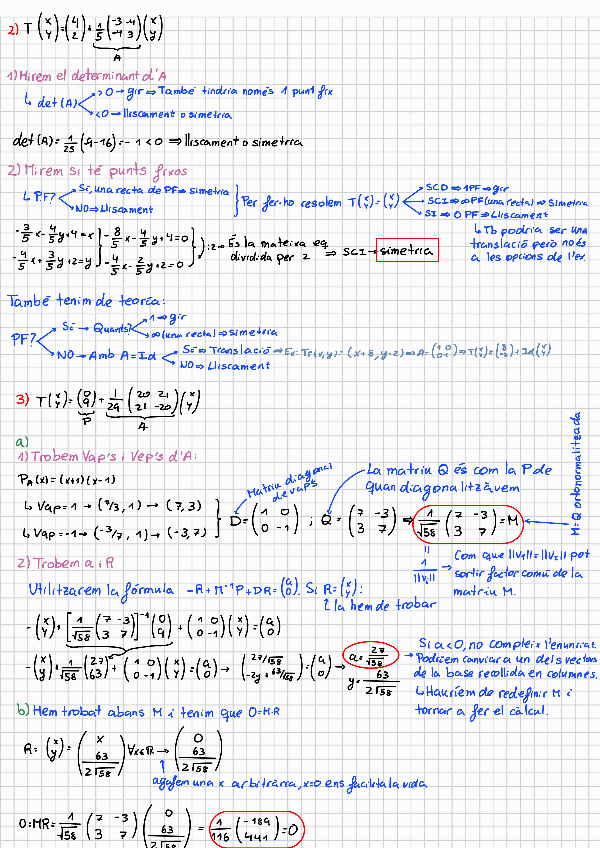 2) T(x y) = (4 2) + 1/5 (-3 -4 -4 3)(x y)
A
1) Mirem el determinant d'A
↳ det(A) >0 → gir ⇒ També tindria només 1 punt fix
<0 → lliscament o simetria
det(A) = 1/25 (-9-16) = -1 < 0 ⇒ lliscament o simetria
2) Mirem si té punts fixos
↳ P.F? Sí, una recta de PF ⇒ simetria
NO ⇒ Lliscament
Per fer-ho resolem T(x y) = (x y)
SCD ⇒ 1PF ⇒ gir
SCI ⇒ ∞PF (una recta) ⇒ simetria
SI ⇒ 0 PF ⇒ Lliscament
↳ Tb podria ser una
translació però no és
a les opcions de l'ex.
-3/5 x - 4/5 y + 4 = x
-4/5 x + 3/5 y + 2 = y
-8/5 x - 4/5 y + 4 = 0
-4/5 x - 2/5 y + 2 = 0
:2 → És la mateixa eq.
dividida per 2 ⇒ SCI → simetria
També tenim de teoria:
PF? Sí → Quants? 1 → gir
∞ (una recta) ⇒ simetria
NO → Amb A=Id Sí ⇒ Translació ⇒ Ex:
NO ⇒ Lliscament
3) T(x y) = (0 9) + 1/29 (20 21 21 -20)(x y)
P A
a)
1) Trobem Vap's i Vep's d'A:
P_A(x) = (x+1)(x-1)
↳ Vap = 1 → (7/3, 1) → (7, 3)
↳ Vap = -1 → (-3/7, 1) → (-3, 7)
Matriu diagonal
de vaps
D = (1 0 0 -1) ; Q = (7 -3 3 7) ⇒ 1/√58 (7 -3 3 7) = M
La matriu Q és com la P de
quan diagonalitzàvem
M = Q ortonormalitzada
= 1/||v₁|| → Com que ||v₁|| = ||v₂|| pot
sortir factor comú de la
matriu M.
2) Trobem a i R
Utilitzarem la fórmula -R + M⁻¹P + DR = (a 0). Si R = (x y):
↥ la hem de trobar
-(x y) + [1/√58 (7 -3 3 7)]⁻¹ (0 9) + (1 0 0 -1)(x y) = (a 0)
-(x y) + 1/√58 (27 63) + (1 0 0 -1)(x y) = (a 0) → (27/√58 -2y + 63/√58) = (a 0) → a = 27/√58
y = 63/2√58
→ Si a<0, no compleix l'enunciat.
Podríem canviar a un dels vectors
de la base recollida en columnes.
↳ Hauríem de redefinir M i
tornar a fer el càlcul.
b) Hem trobat abans M i tenim que O=M·R
R = (x y) = (x 63/2√58) ∀x∈ℝ → (0 63/2√58)
agafem una x arbitrària, x=0 ens facilita la vida
O = MR = 1/√58 (7 -3 3 7)(0 63/2√58) = 1/116 (-189 441) = O